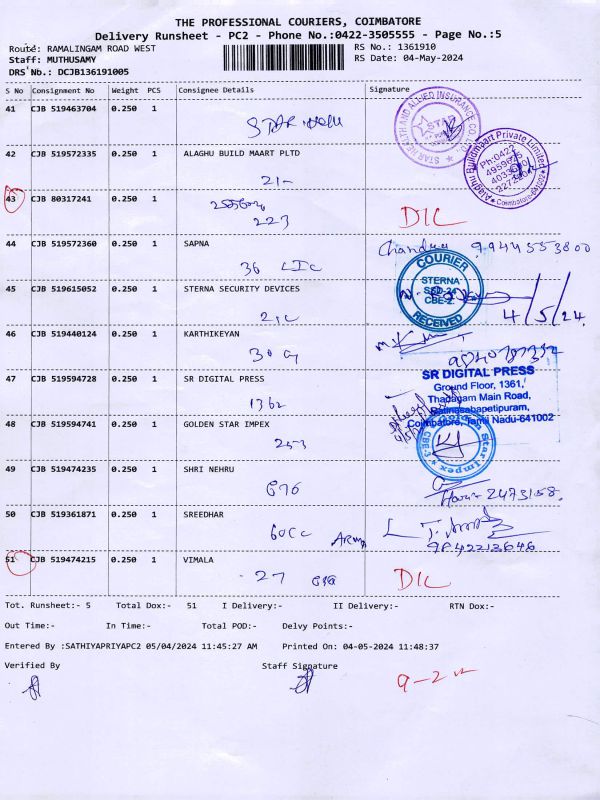 THE PROFESSIONAL COURIERS, COIMBATORE
Delivery Runsheet - PC2 - Phone No.:0422-3505555 - Page No.:5
Route: RAMALINGAM ROAD WEST
RS No.: 1361910
Staff: MUTHUSAMY
RS Date: 04-May-2024
DRS No.: DCJB136191005
S No Consignment No Weight PCS Consignee Details Signature
41 CJB 519463704 0.250 1
STAR
STAR HEALTH AND ALLIED INSURANCE CO
STAR
42 CJB 519572335 0.250 1 ALAGHU BUILD MAART PLTD
21-
Alaghu Buildmaart Private Limited
Ph:0422
Coimbatore-641002
43 CJB 80317241 0.250 1
223
D/C
44 CJB 519572360 0.250 1 SAPNA
36 LIC
Chandra 9944553800
45 CJB 519615052 0.250 1 STERNA SECURITY DEVICES
21C
COURIER
STERNA
CBE-2.
RECEIVED
4/5/24.
46 CJB 519440124 0.250 1 KARTHIKEYAN
30 G
47 CJB 519594728 0.250 1 SR DIGITAL PRESS
1362
SR DIGITAL PRESS
Ground Floor, 1361,
Thadagam Main Road,
Ratnasabapetipuram,
Coimbatore, Tamil Nadu-641002
48 CJB 519594741 0.250 1 GOLDEN STAR IMPEX
253
Golden Star Impex
49 CJB 519474235 0.250 1 SHRI NEHRU
2473158.
50 CJB 519361871 0.250 1 SREEDHAR
60CC
9842213646
51 CJB 519474215 0.250 1 VIMALA
27
D/C
Tot. Runsheet:- 5 Total Dox:- 51 I Delivery:- II Delivery:- RTN Dox:-
Out Time:- In Time:- Total POD:- Delvy Points:-
Entered By :SATHIYAPRIYAPC2 05/04/2024 11:45:27 AM Printed On: 04-05-2024 11:48:37
Verified By Staff Signature